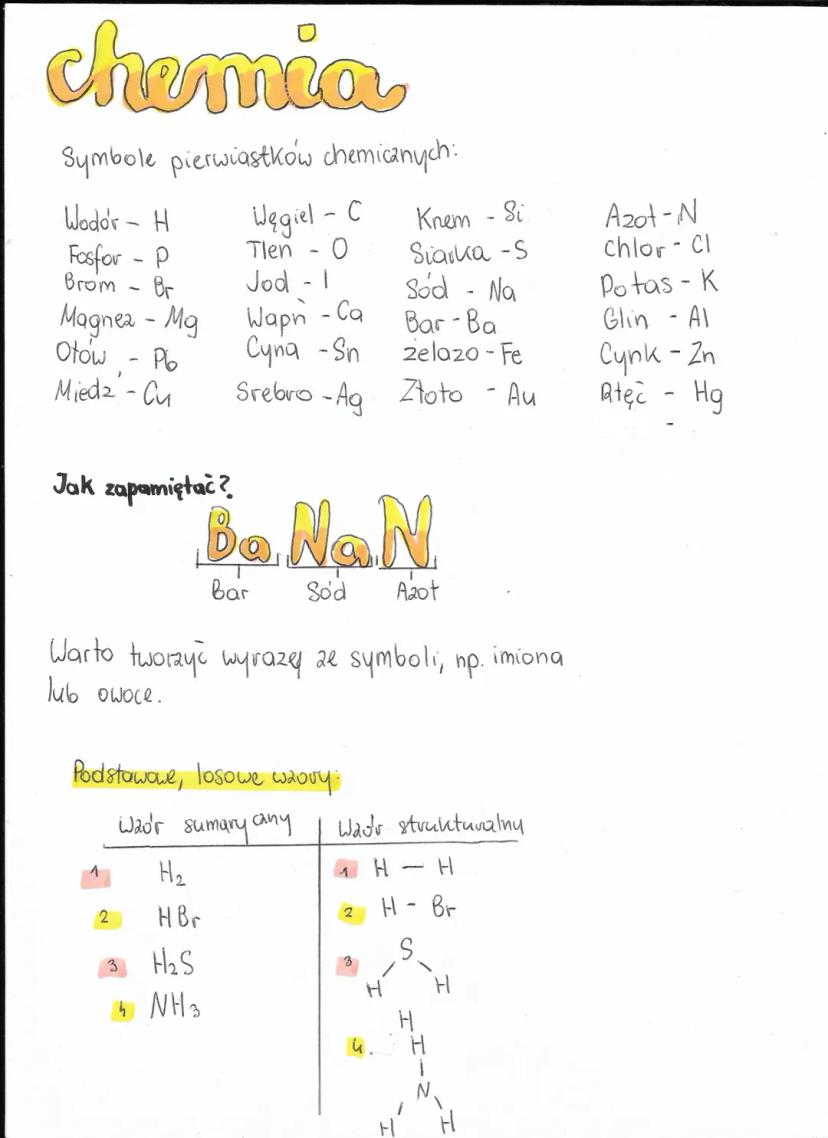 chemia
Symbole pierwiastków chemicznych:
Wodór - H Węgiel - C Krzem - Si Azot - N
Fosfor - P Tlen - O Siarka - S Chlor - Cl
Brom - Br Jod - I Sód - Na Potas - K
Magnez - Mg Wapń - Ca Bar - Ba Glin - Al
Ołów - Pb Cyna - Sn Żelazo - Fe Cynk - Zn
Miedź - Cu Srebro - Ag Złoto - Au Rtęć - Hg
Jak zapamiętać?
Ba Na N
Bar Sód Azot
Warto tworzyć wyrazy ze symboli, np. imiona
lub owoce.
Podstawowe, losowe wzory:
Wzór sumaryczny Wzór strukturalny
1 H2 1 H — H
2 HBr 2 H - Br
3 H2S 3 S
H H
4 NH3 H
4. H
N
H H